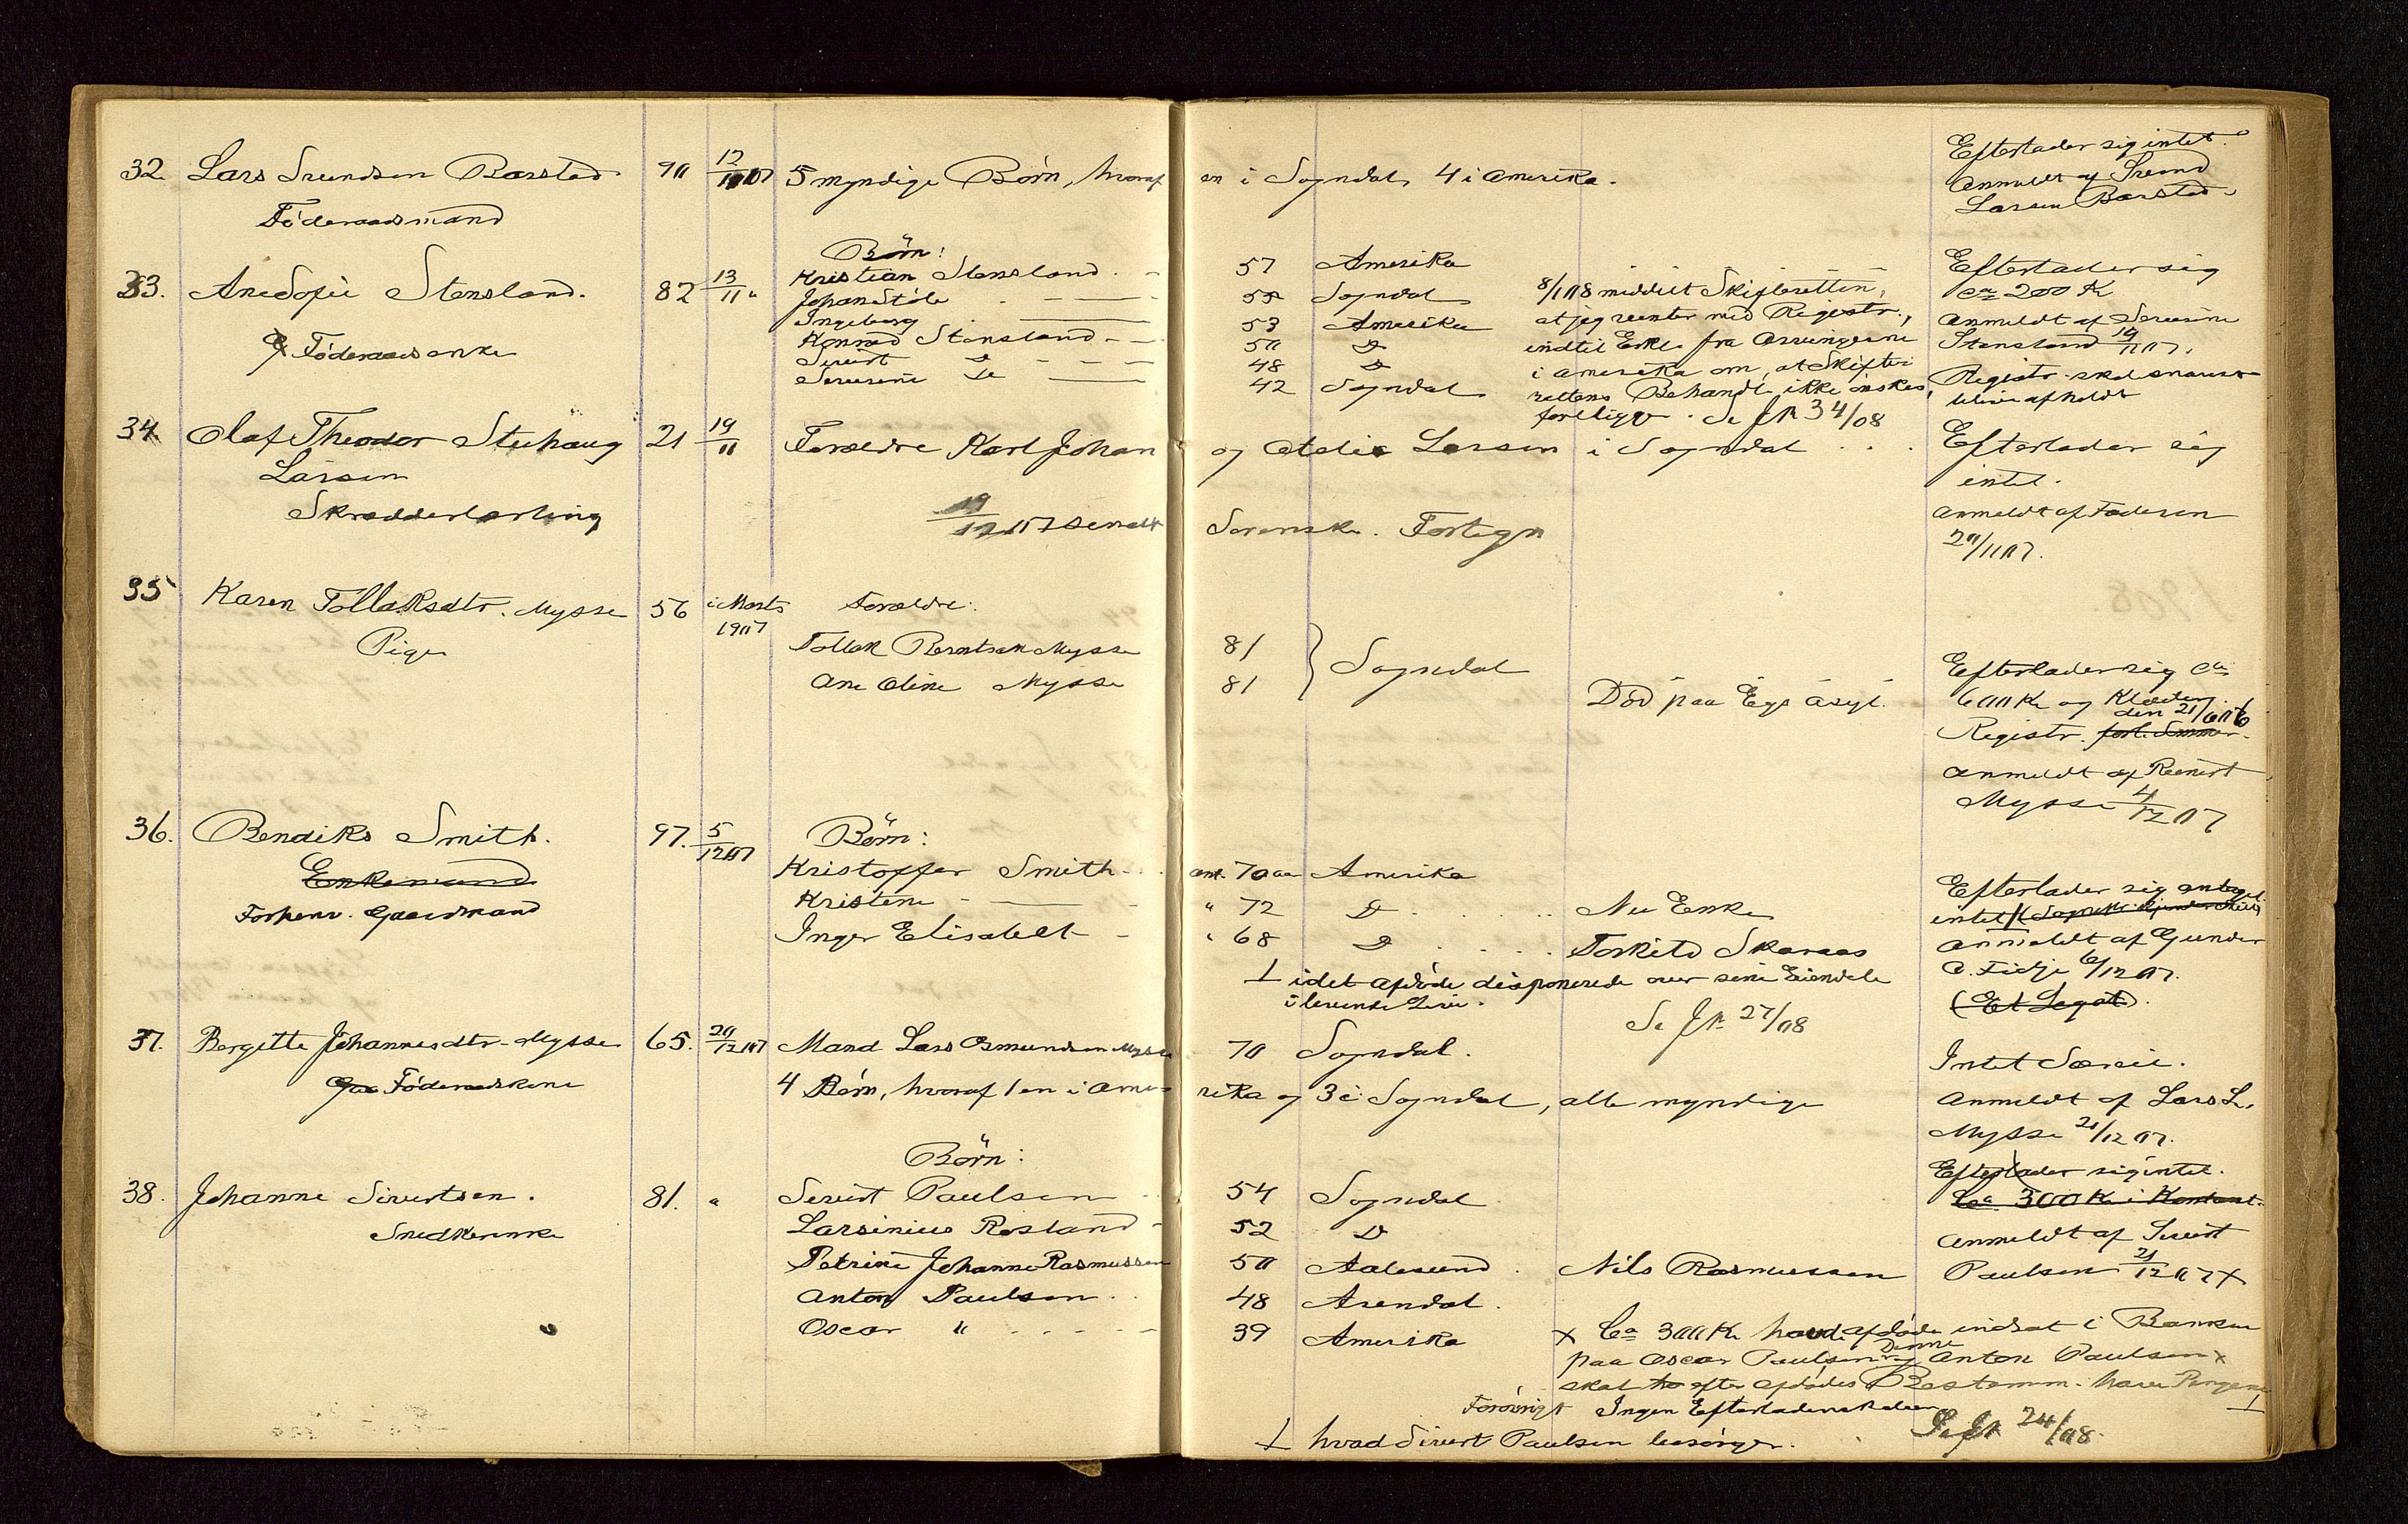 32. Lars Svendsen Barstad 90 12/11 07 5 myndige Børn, hvoraf en i Sogndal, 4 i Amerika.
Föderaadsmand
Efterlader sig intet.
Anmeldt af Svend
Larsen Barstad.
33. Ane Sofie Stensland. 82 13/11 "
Föderaadsenke
Börn:
Kristian Stensland. 57 Amerika
Johan Stöle 55 Sogndal
Ingeborg 53 Amerika
Konrad Stensland 50 D
Sivert D 48 D
Severine D 42 Sogndal
8/1 08 meddelt Skifteretten,
at jeg venter med Registr.,
indtil Erkl. fra Arvingerne
i Amerika om, at Skifte-
rettens Behandl. ikke önskes,
foreligger. Se JN 34/08
Efterlader sig
ca 200 K
Anmeldt af Severine
Stensland 19/11 07.
Registr. skal snarest
blive afholdt
34. Olaf Theodor Stuhaug 21 19/11 Forældre Karl Johan og Atelie Larsen i Sogndal
Larsen
Skrædderlærling
19/12 07 sendt Sorensk. Fortegn
Efterlader sig
intet.
Anmeldt af Faderen
20/11 07.
35 Karen Tollaksdtr. Mysse 56 i Marts
1907
Pige
Forældre:
Tollak Berntsen Mysse 81
Ane Oline Mysse 81
Sogndal
Död paa Egs Asyl.
Efterlader sig ca
600 Kr og Klæder.
den 21/6 06
Registr. forl.
Anmeldt af Reinert
Mysse 4/12 07
36. Bendiks Smith. 97. 5/12 07
Enkemand
Forhenv. Gaardmand
Börn:
Kristoffer Smith ant. 70 aar Amerika
Kristene " 72 D Nu Enke
Inger Elisabeth " 68 D Torkild Skaraas
⊥ idet afdöde disponerede over sine Eiendele
i levende Live.
Se JN 27/08
Efterlader sig antagel.
intet
Anmeldt af Gunder
A. Fidje 6/12 07.
(Et Legat).
37. Bergitte Johannesdtr. Mysse 65. 20/12 07 Mand Lars Osmundsen Mysse 70 Sogndal.
Föderaadskone
4 Børn, hvoraf 1 en i Ame- rika og 3 i Sogndal, alle myndige
Intet Særeie.
Anmeldt af Lars L.
Mysse 21/12 07.
38. Johanne Sivertsen. 81. "
Snedkerenke
Börn:
Sivert Paulsen 54 Sogndal
Larsinius Røsland 52 D
Petrine Johanne Rasmussen 50 Aalesund. Nils Rasmussen
Anton Paulsen 48 Arendal.
Oscar " 39 Amerika
Efterlader sig intet.
Ca 300 K i Kontant.
Anmeldt af Sivert
Paulsen 21/12 07 x
x Ca 300 Kr havde afdöde indsat i Banken
paa Oscar Paulsen og Anton Paulsen x
Denne
skal efter afdödes Bestemm. have Pengene
Forövrigt Ingen Efterladenskaber ⊥
⊥ hvad Sivert Paulsen besörger.
Se JN 24/08.